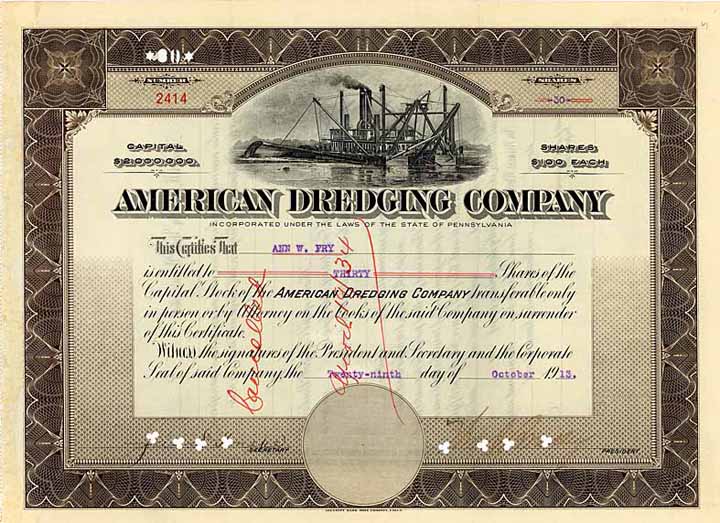 *30*
NUMBER
2414
SHARES
-30-
CAPITAL
$2,000,000.
SHARES
$100 EACH.
AMERICAN DREDGING COMPANY
INCORPORATED UNDER THE LAWS OF THE STATE OF PENNSYLVANIA
This Certifies That ANN W. FRY
is entitled to THIRTY Shares of the
Capital Stock of the AMERICAN DREDGING COMPANY transferable only
in person or by Attorney on the books of the said Company on surrender
of this Certificate.
Witness the signatures of the President and Secretary and the Corporate
Seal of said Company, the Twenty-ninth day of October 1913.
Cancelled
SECRETARY
PRESIDENT